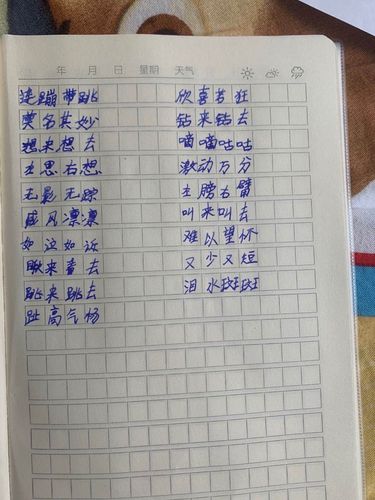 年 月 日 星期 天气
连蹦带跳 欣喜若狂
莫名其妙 钻来钻去
想来想去 嘀嘀咕咕
左思右想 激动万分
无影无踪 左膀右臂
威风凛凛 叫来叫去
如泣如诉 难以望怀
来看去 又少又短
跳来跳去 泪水斑斑
趾高气扬